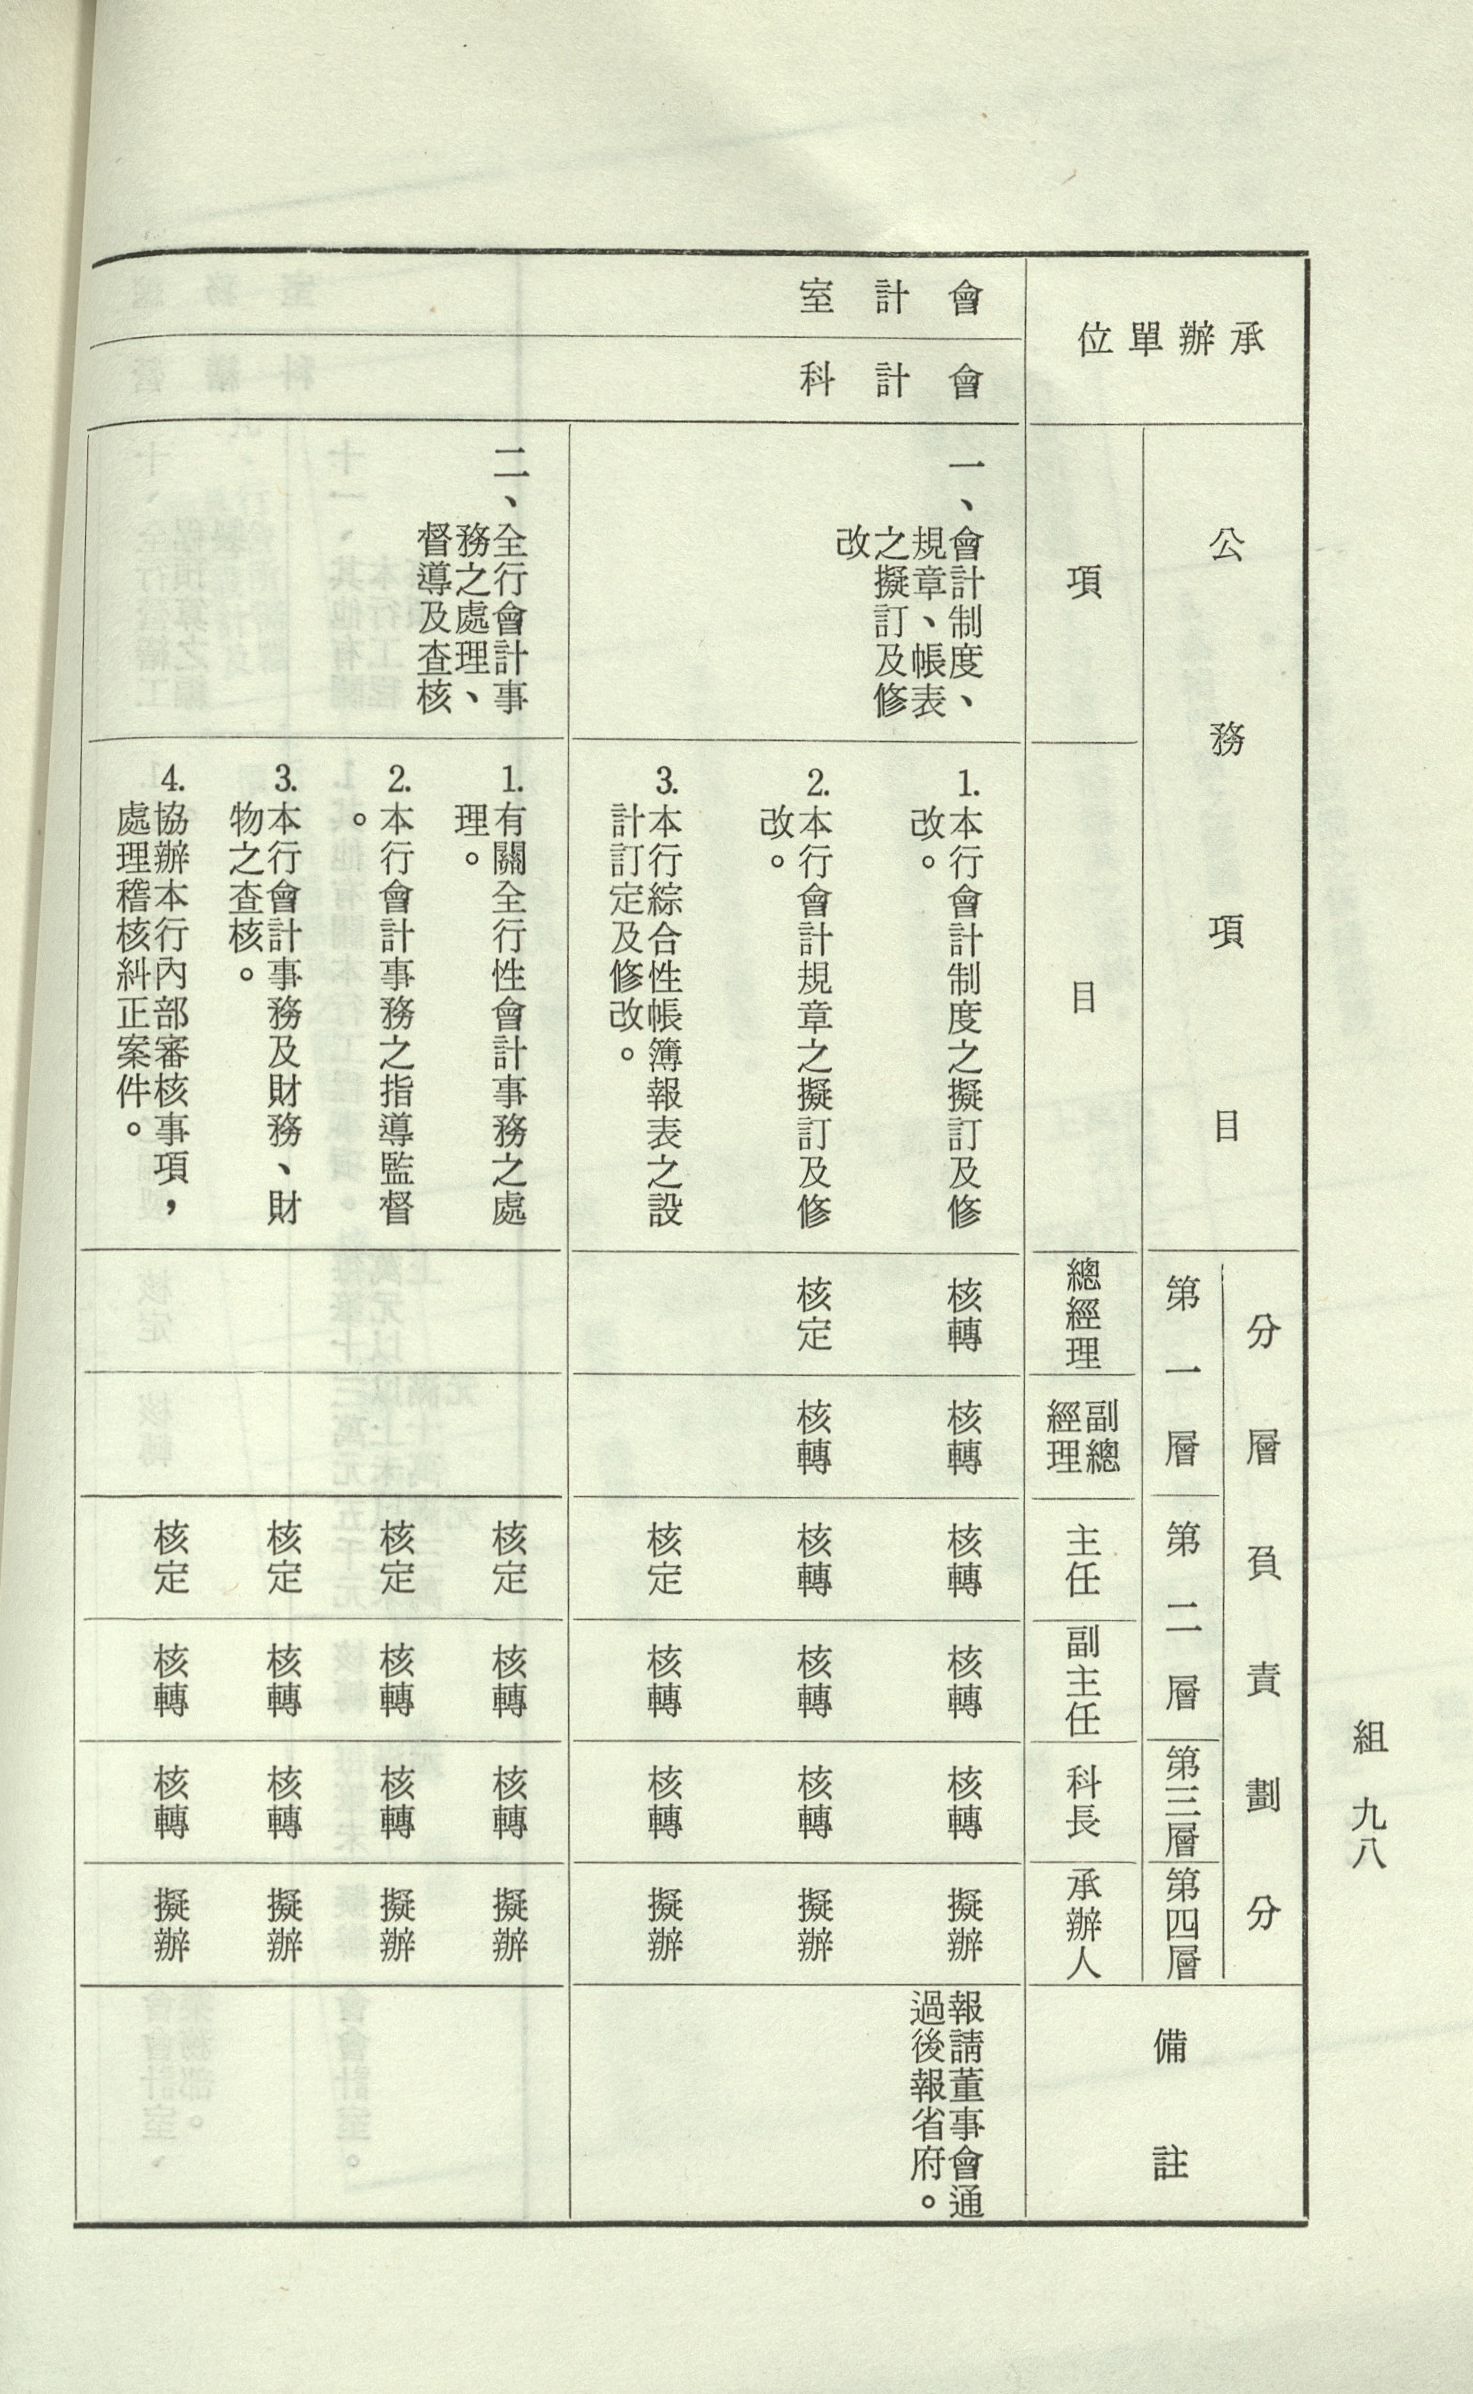 組 九八
承辦單位
公務項目
項
目
分層負責劃分
第一層
第二層
第三層
第四層
總經理
副總
經理
主任
副主任
科長
承辦人
備註
會計室
會計科
一、會計制度、
規章、帳表
之擬訂及修
改
1.本行會計制度之擬訂及修
改。
核轉
核轉
核轉
核轉
核轉
擬辦
報請董事會通
過後報省府。
2.本行會計規章之擬訂及修
改。
核定
核轉
核轉
核轉
核轉
擬辦
3.本行綜合性帳簿報表之設
計訂定及修改。
核定
核轉
核轉
擬辦
二、全行會計事
務之處理、
督導及查核
1.有關全行性會計事務之處
理。
核定
核轉
核轉
擬辦
2.本行會計事務之指導監督
。
核定
核轉
核轉
擬辦
3.本行會計事務及財務、財
物之查核。
核定
核轉
核轉
擬辦
4.協辦本行內部審核事項，
處理稽核糾正案件。
核定
核轉
核轉
擬辦